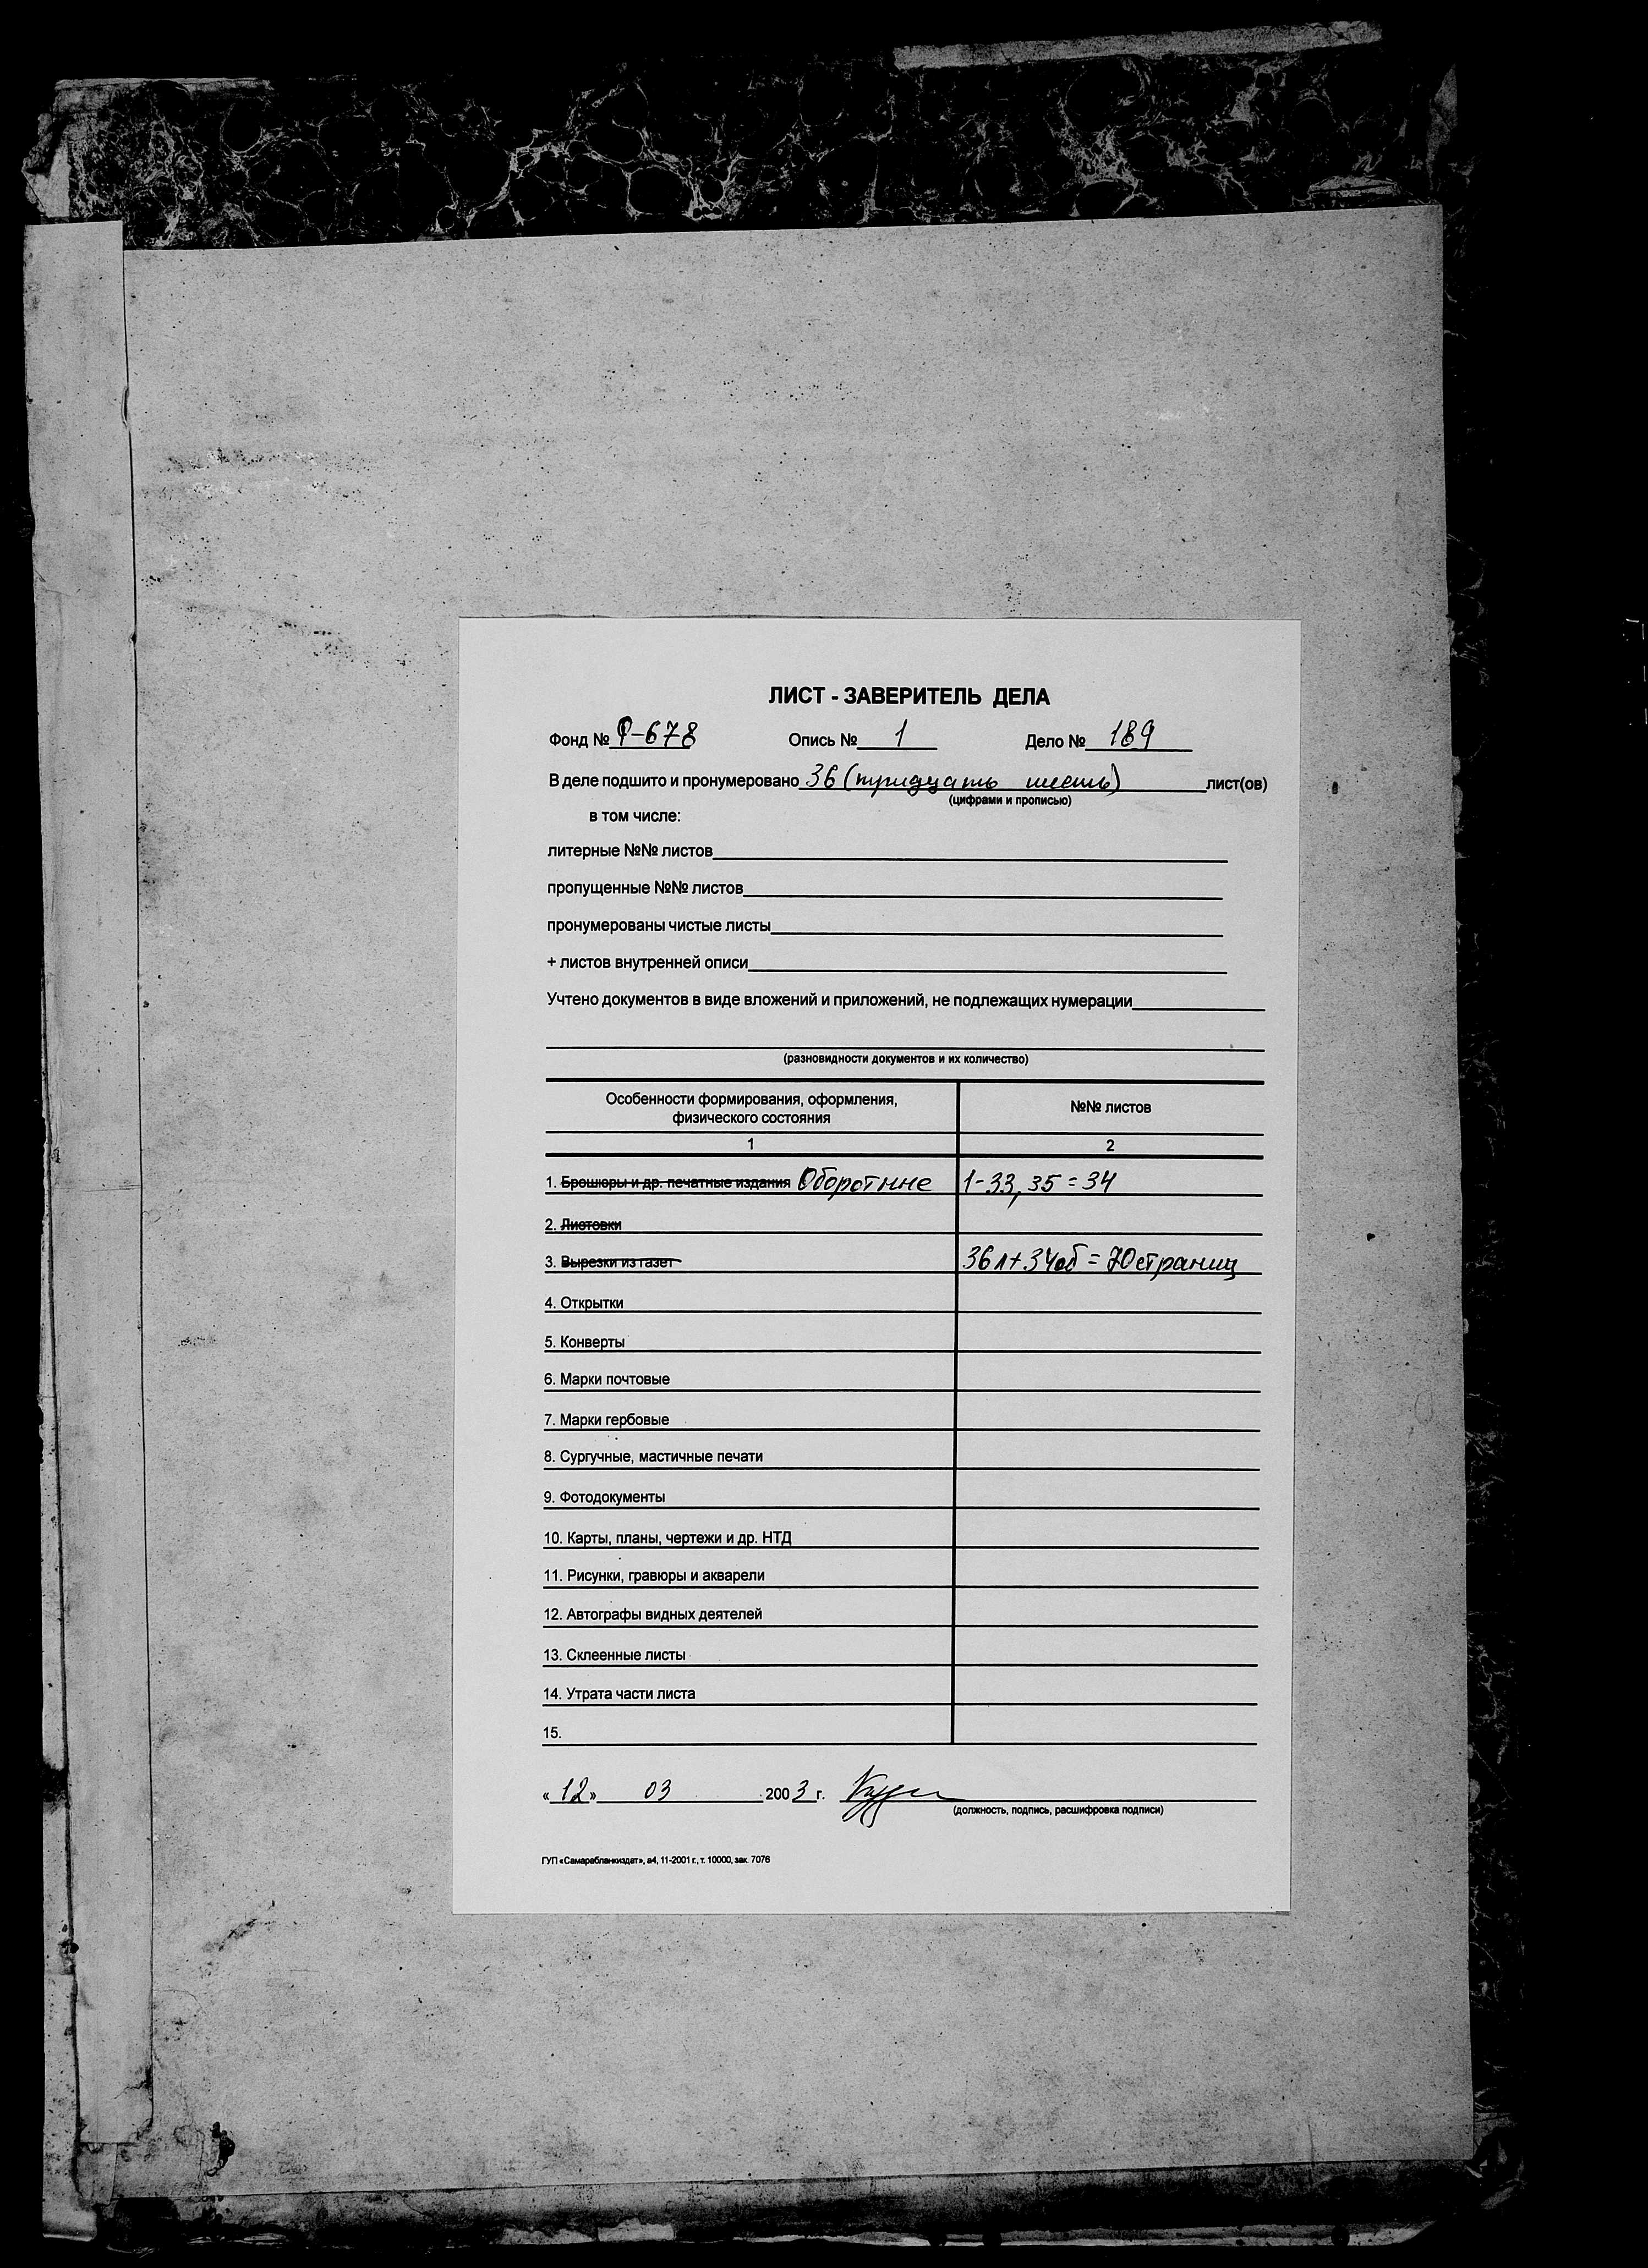 ЛИСТ - ЗАВЕРИТЕЛЬ ДЕЛА
Фонд № Р-678 Опись № 1 Дело № 189
В деле подшито и пронумеровано 36 (тридцать шесть) лист(ов)
(цифрами и прописью)
в том числе:
литерные №№ листов
пропущенные №№ листов
пронумерованы чистые листы
+ листов внутренней описи
Учтено документов в виде вложений и приложений, не подлежащих нумерации
(разновидности документов и их количество)
Особенности формирования, оформления,
физического состояния
№№ листов
1 2
1. Брошюры и др. печатные издания Оборотные 1-33, 35 = 34
2. Листовки
3. Вырезки из газет 36 л + 34 об = 70 страниц
4. Открытки
5. Конверты
6. Марки почтовые
7. Марки гербовые
8. Сургучные, мастичные печати
9. Фотодокументы
10. Карты, планы, чертежи и др. НТД
11. Рисунки, гравюры и акварели
12. Автографы видных деятелей
13. Склеенные листы
14. Утрата части листа
15.
« 12 » 03 2003 г.
(должность, подпись, расшифровка подписи)
ГУП «Самарабланкиздат», а4, 11-2001 г., т. 10000, зак. 7076